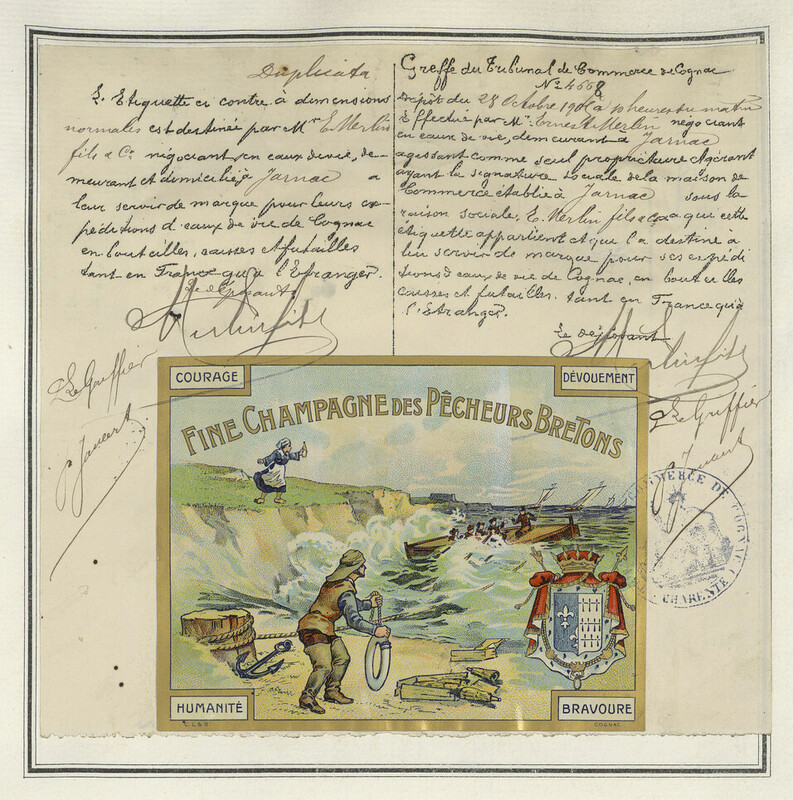 Duplicata
L'Etiquette ci contre, à dimensions
normales est destinée par Mr E. Merlin
fils & Cie négociant en eaux de vie, de-
meurant et domicilié à Jarnac a
leur servir de marque pour leurs ex-
péditions d'eaux de vie de Cognac
en bouteilles, caisses et futailles
tant en France qu'à l'Etranger.
Le déposant
Merlin fils
Le Greffier
Greffe du Tribunal de Commerce de Cognac
No 4668
Dépôt du 28 Octobre à heures du matin
Effectué par Mr Ernest Merlin négociant
en eaux de vie, demeurant à Jarnac
agissant comme seul propriétaire & gérant
ayant la signature sociale de la maison de
Commerce établie à Jarnac sous la
raison sociale, E. Merlin fils & Co a que cette
étiquette appartient et qu'il a destiné à
lui servir de marque pour ses expédi
tions d'eaux de vie de Cognac, en bouteilles
caisses et futailles, tant en France qu'à
l'Etranger.
Le déposant
Merlin fils
Le Greffier
COURAGE
DÉVOUEMENT
FINE CHAMPAGNE DES PÊCHEURS BRETONS
HUMANITÉ
BRAVOURE
COGNAC
COMMERCE DE COGNAC
CHARENTE